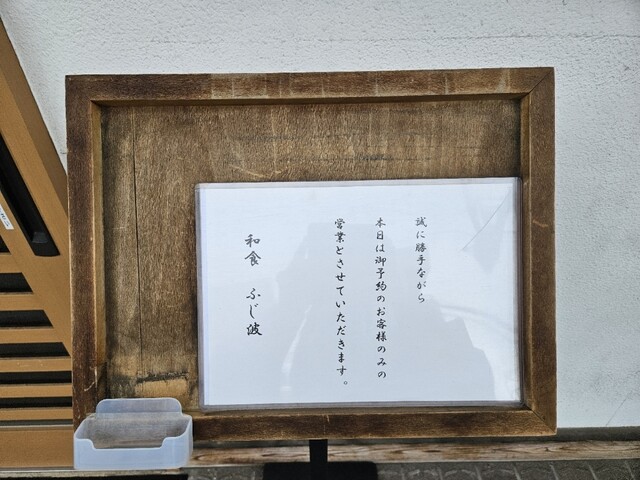 誠に勝手ながら
本日は御予約のお客様のみの
営業とさせていただきます。
和食　ふじ波